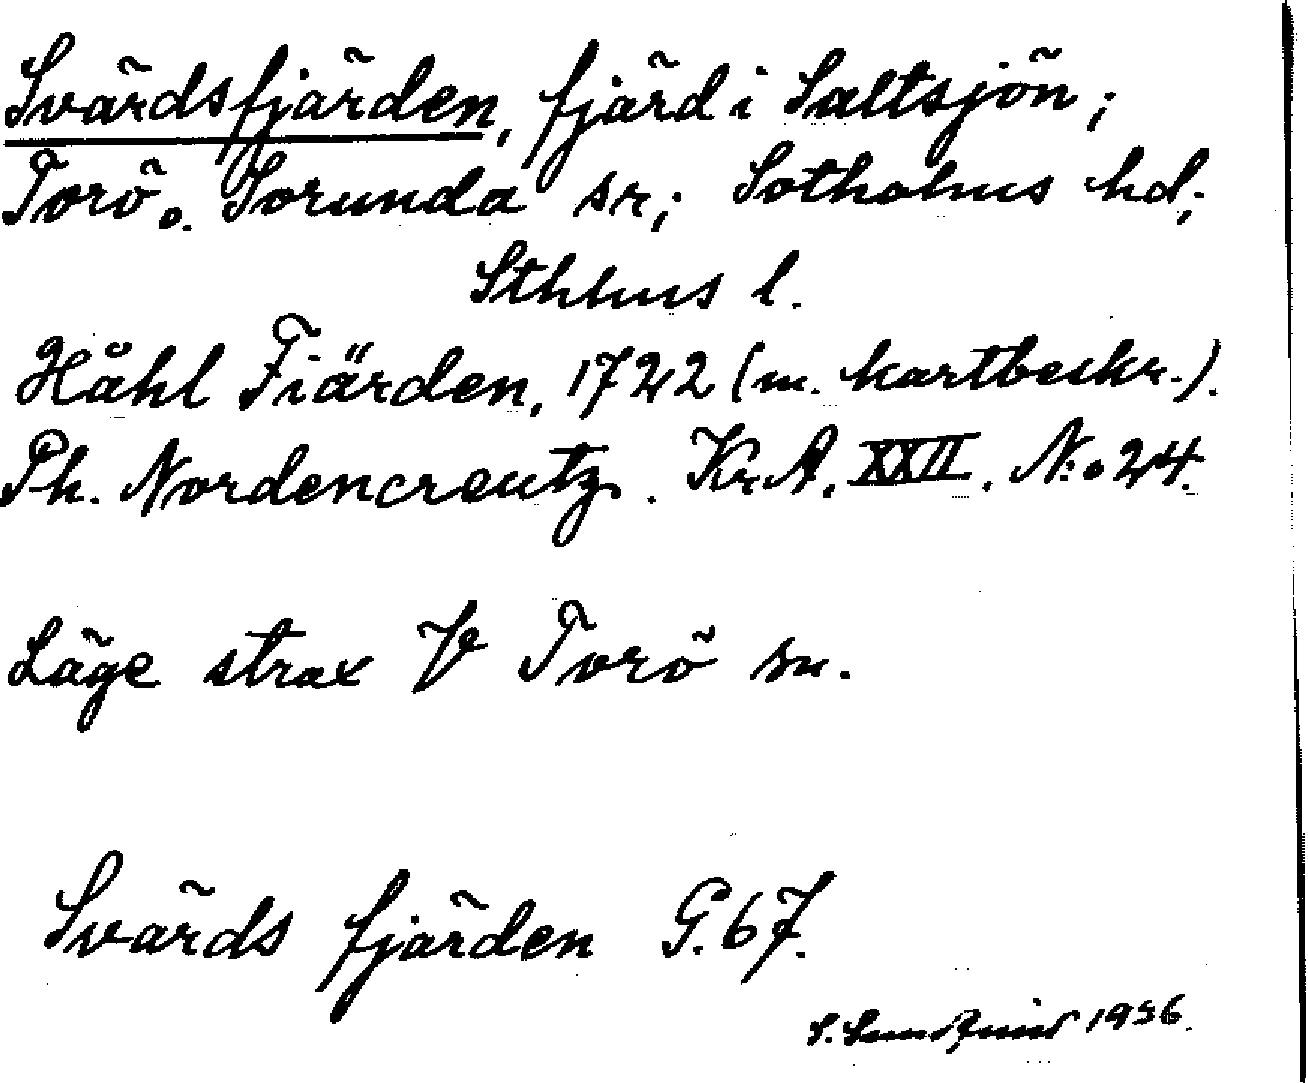 Svärdsfjärden, fjärd i Saltsjön;
Torö o. Sorunda sr; Sotholms hd;
Sthlms l.
Håhl Fiärden, 1722 (m. kartbeskr.).
Ph. Nordencreutz. Kr.A. XXII. N:o 24.
Läge strax V Torö sn.
Svärds fjärden G. 67.
S. Sundquist 1936.